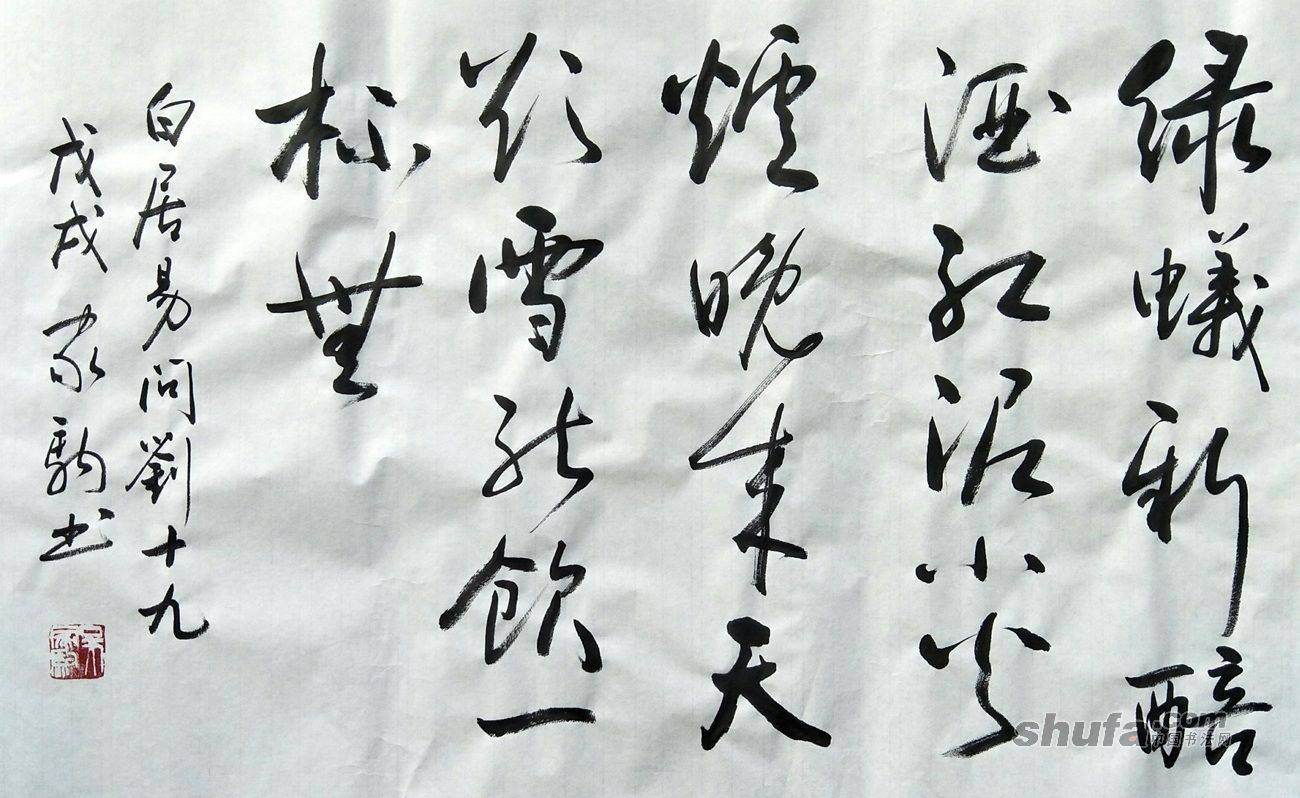 绿蟻新醅
酒红泥小火
爐晚来天
欲雪能飲一
杯無
白居易问劉十九
戊戌家駒书
shufa.com
中国书法网